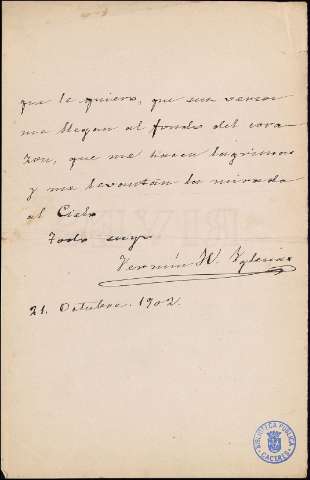 que le quiero, que sus versos
me llegan al fondo del cora-
zon, que me hacen lagrimas
y me levantan la mirada
al Cielo
Todo suyo
Fermín H. Yglesias
21. Octubre. 1902.
BIBLIOTECA PUBLICA
CACERES